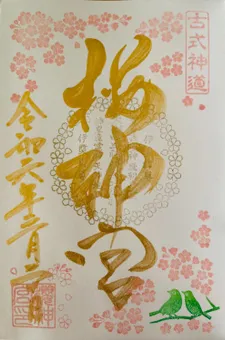 古式神道
桜神宮
令和六年三月二日